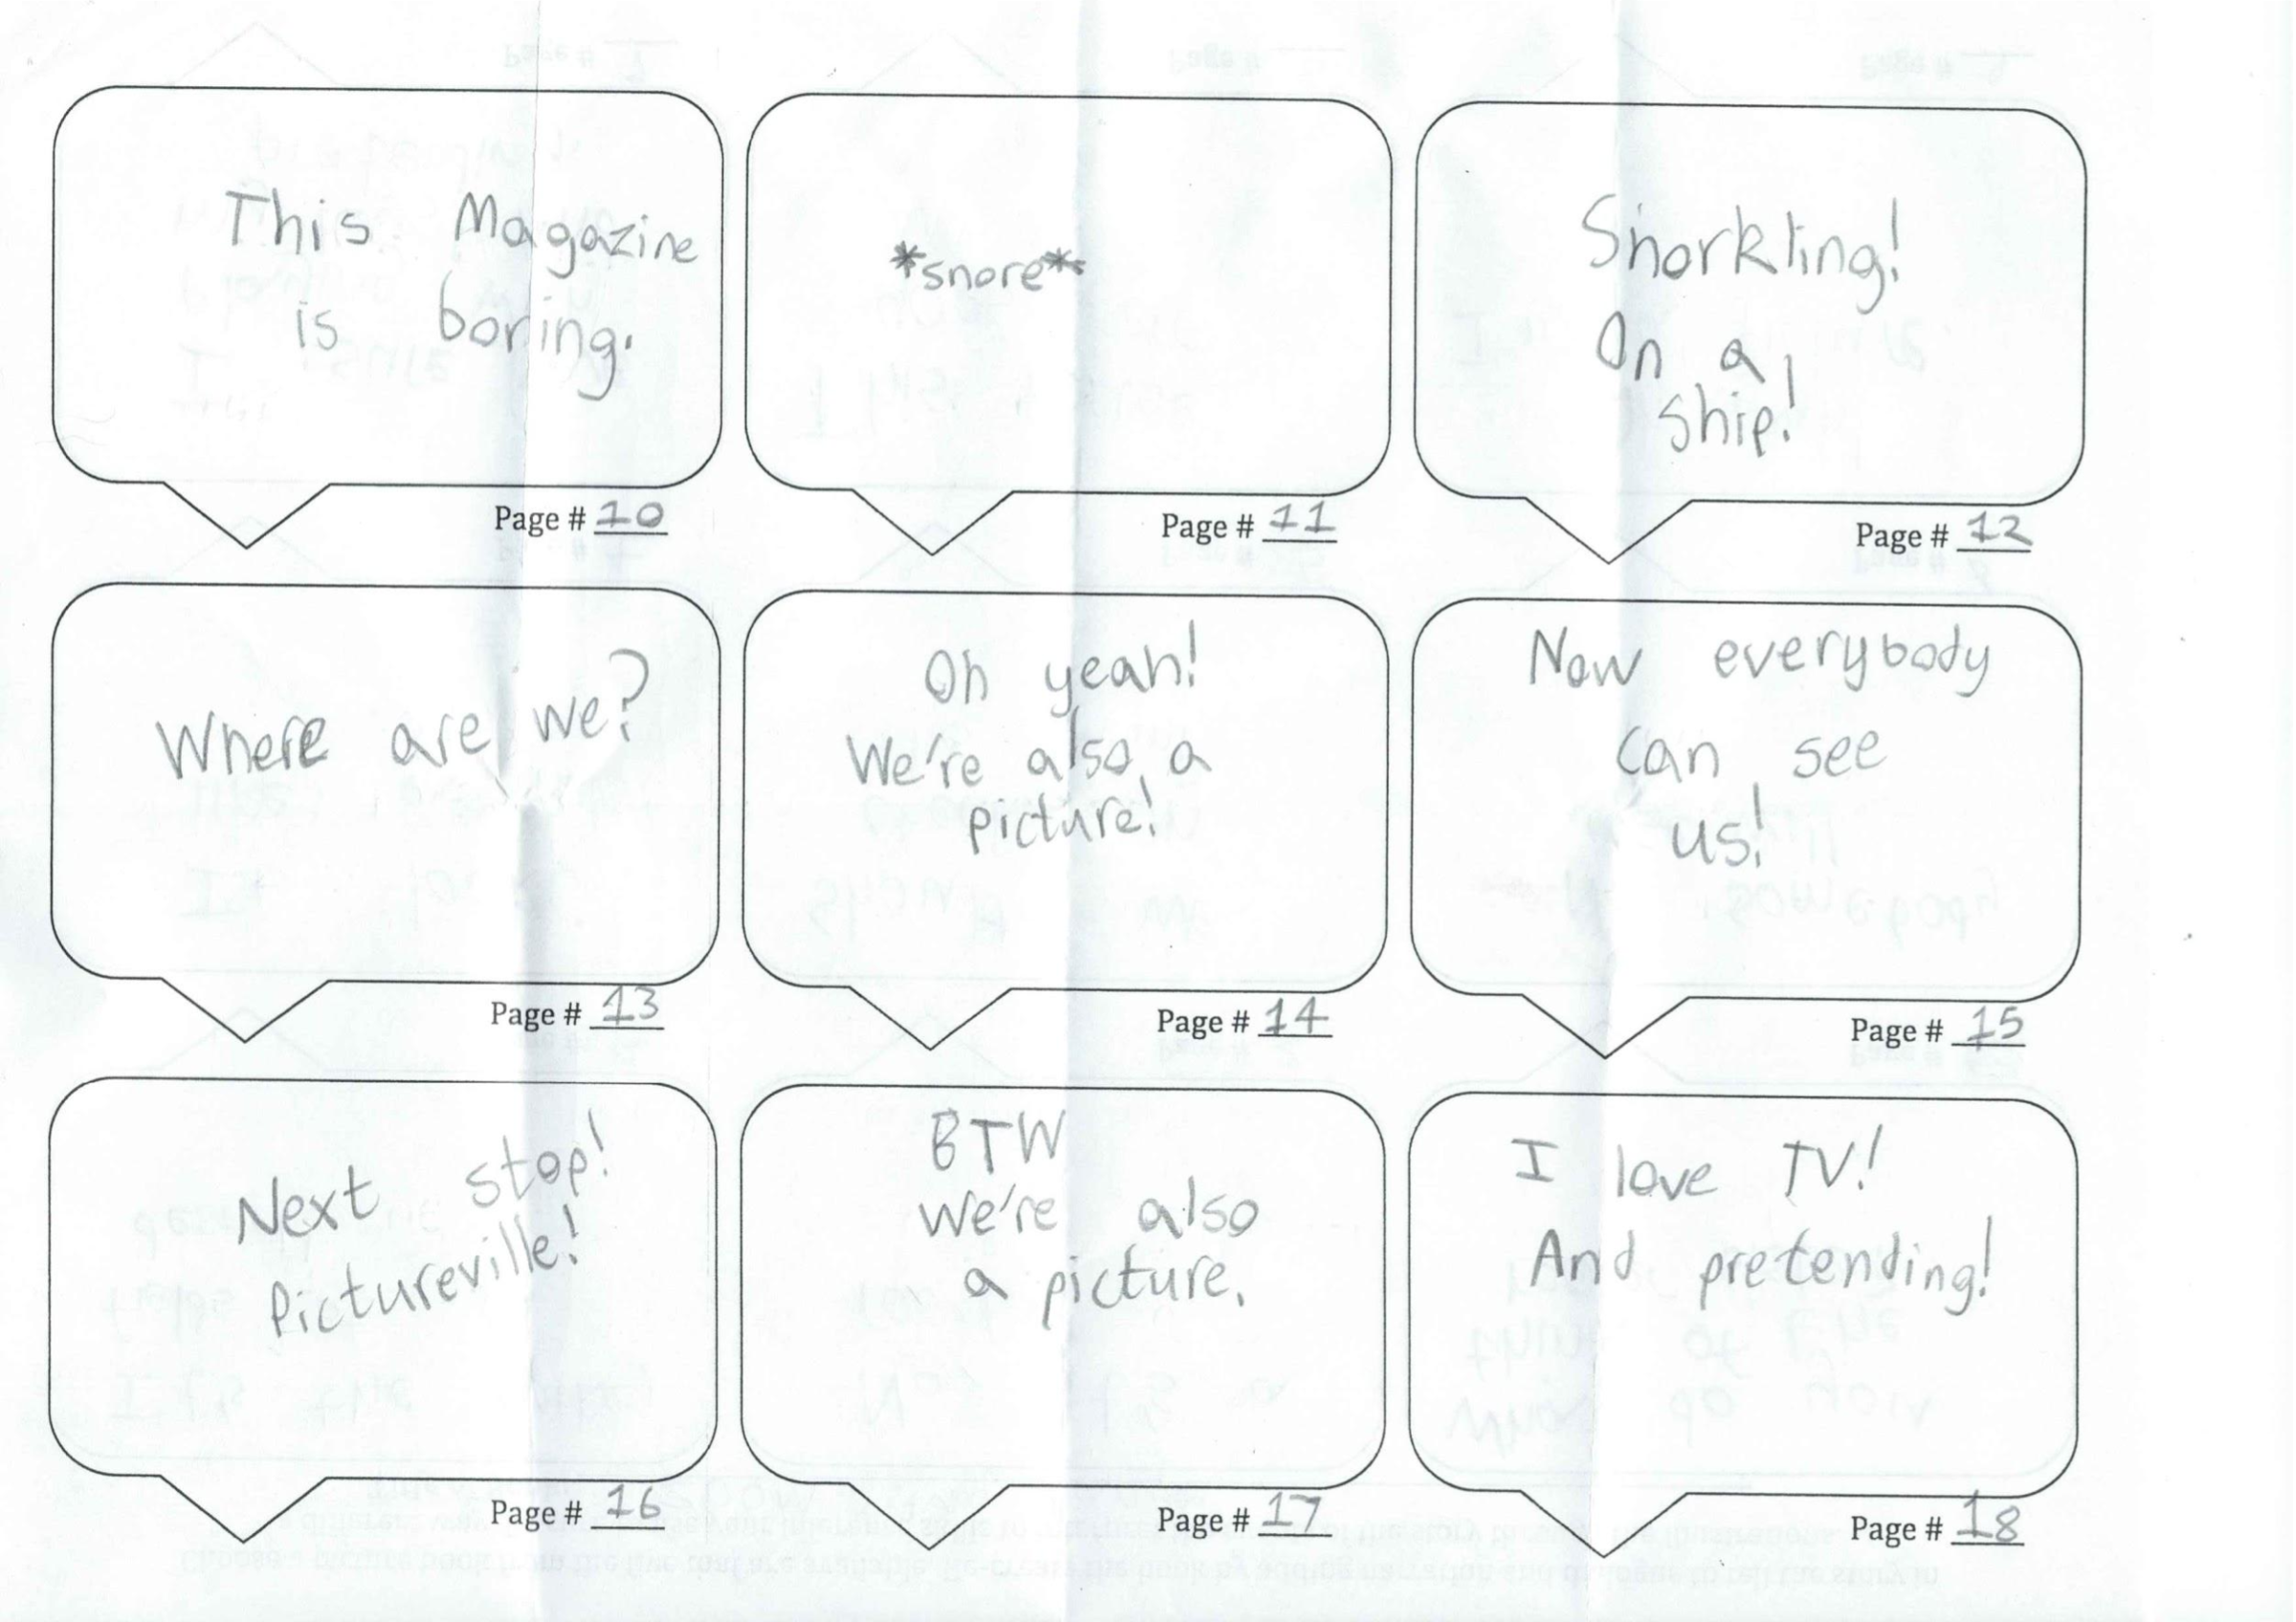 This Magazine
is boring.
Page # 10
*snore*
Page # 11
Snorkling!
On a
ship!
Page # 12
Where are we?
Page # 13
Oh yeah!
We're also a
picture!
Page # 14
Now everybody
can see
us!
Page # 15
Next stop!
Pictureville!
Page # 16
BTW
We're also
a picture.
Page # 17
I love TV!
And pretending!
Page # 18